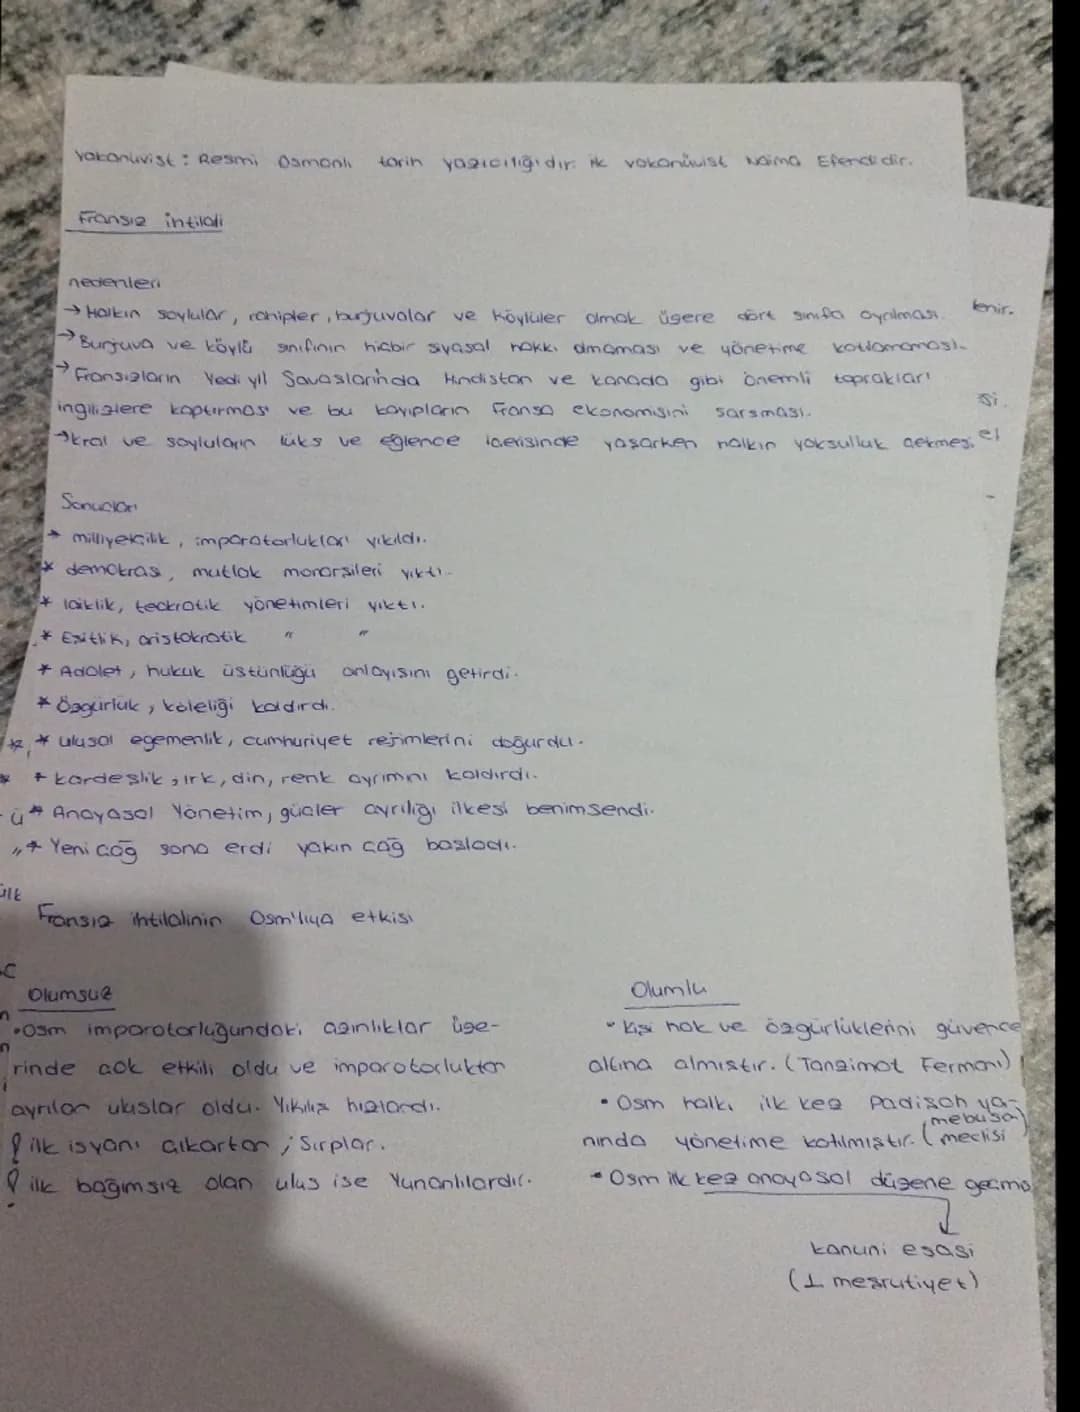 Vakanüvist : Resmi Osmanlı tarih yazıcılığıdır. ilk vakanüvist Naima Efendidir.
Fransız intilali
nedenleri
→ Halkın soylular, rahipler, burjuvalar ve köylüler olmak üzere dört sınıfa ayrılması.
→ Burjuva ve köylü sınıfının hiçbir siyasal hakkı olmaması ve yönetime katılamaması.
→ Fransızların Yedi yıl Savaslarında Hindistan ve kanada gibi önemli toprakları
ingilizlere kaptırması ve bu kayıpların Fransa ekonomisini sarsması.
→ kral ve soyluların lüks ve eğlence icerisinde yaşarken halkın yoksulluk çekmesi.
lenir.
si.
el
Sonuçları
* milliyetçilik, imparatorlukları yıkıldı.
* demokrasi, mutlak monarşileri yıktı.
* laiklik, teokratik yönetimleri yıktı.
* Eşitlik, aristokratik " "
* Adalet, hukuk üstünlüğü anlayısını getirdi.
* Özgürlük, köleliği kaldırdı.
* ulusal egemenlik, cumhuriyet rejimlerini doğurdu.
* kardeslik, ırk, din, renk ayrımnı kaldırdı.
* Anayasal Yönetim, güçler ayrılığı ilkesi benimsendi.
* Yeni çağ sona erdi yakın çağ basladı.
Fransız ihtilalinin Osm'lıya etkisi
Olumsuz
• Osm imparatorluğundaki azınlıklar üze-
rinde çok etkili oldu ve imparatorluktan
ayrılan uluslar oldu. Yıkılış hızlandı.
! ilk isyanı çıkartan ; Sırplar.
! ilk bağımsız olan ulus ise Yunanlılardır.
Olumlu
• kişi hak ve özgürlüklerini güvence
altına almıştır. (Tanzimat Fermanı)
• Osm halkı ilk kez Padişah ya-
nında yönetime katılmıştır. (mebusan meclisi)
• Osm ilk kez anayasal düzene geçme
kanuni esasi
(I meşrutiyet)